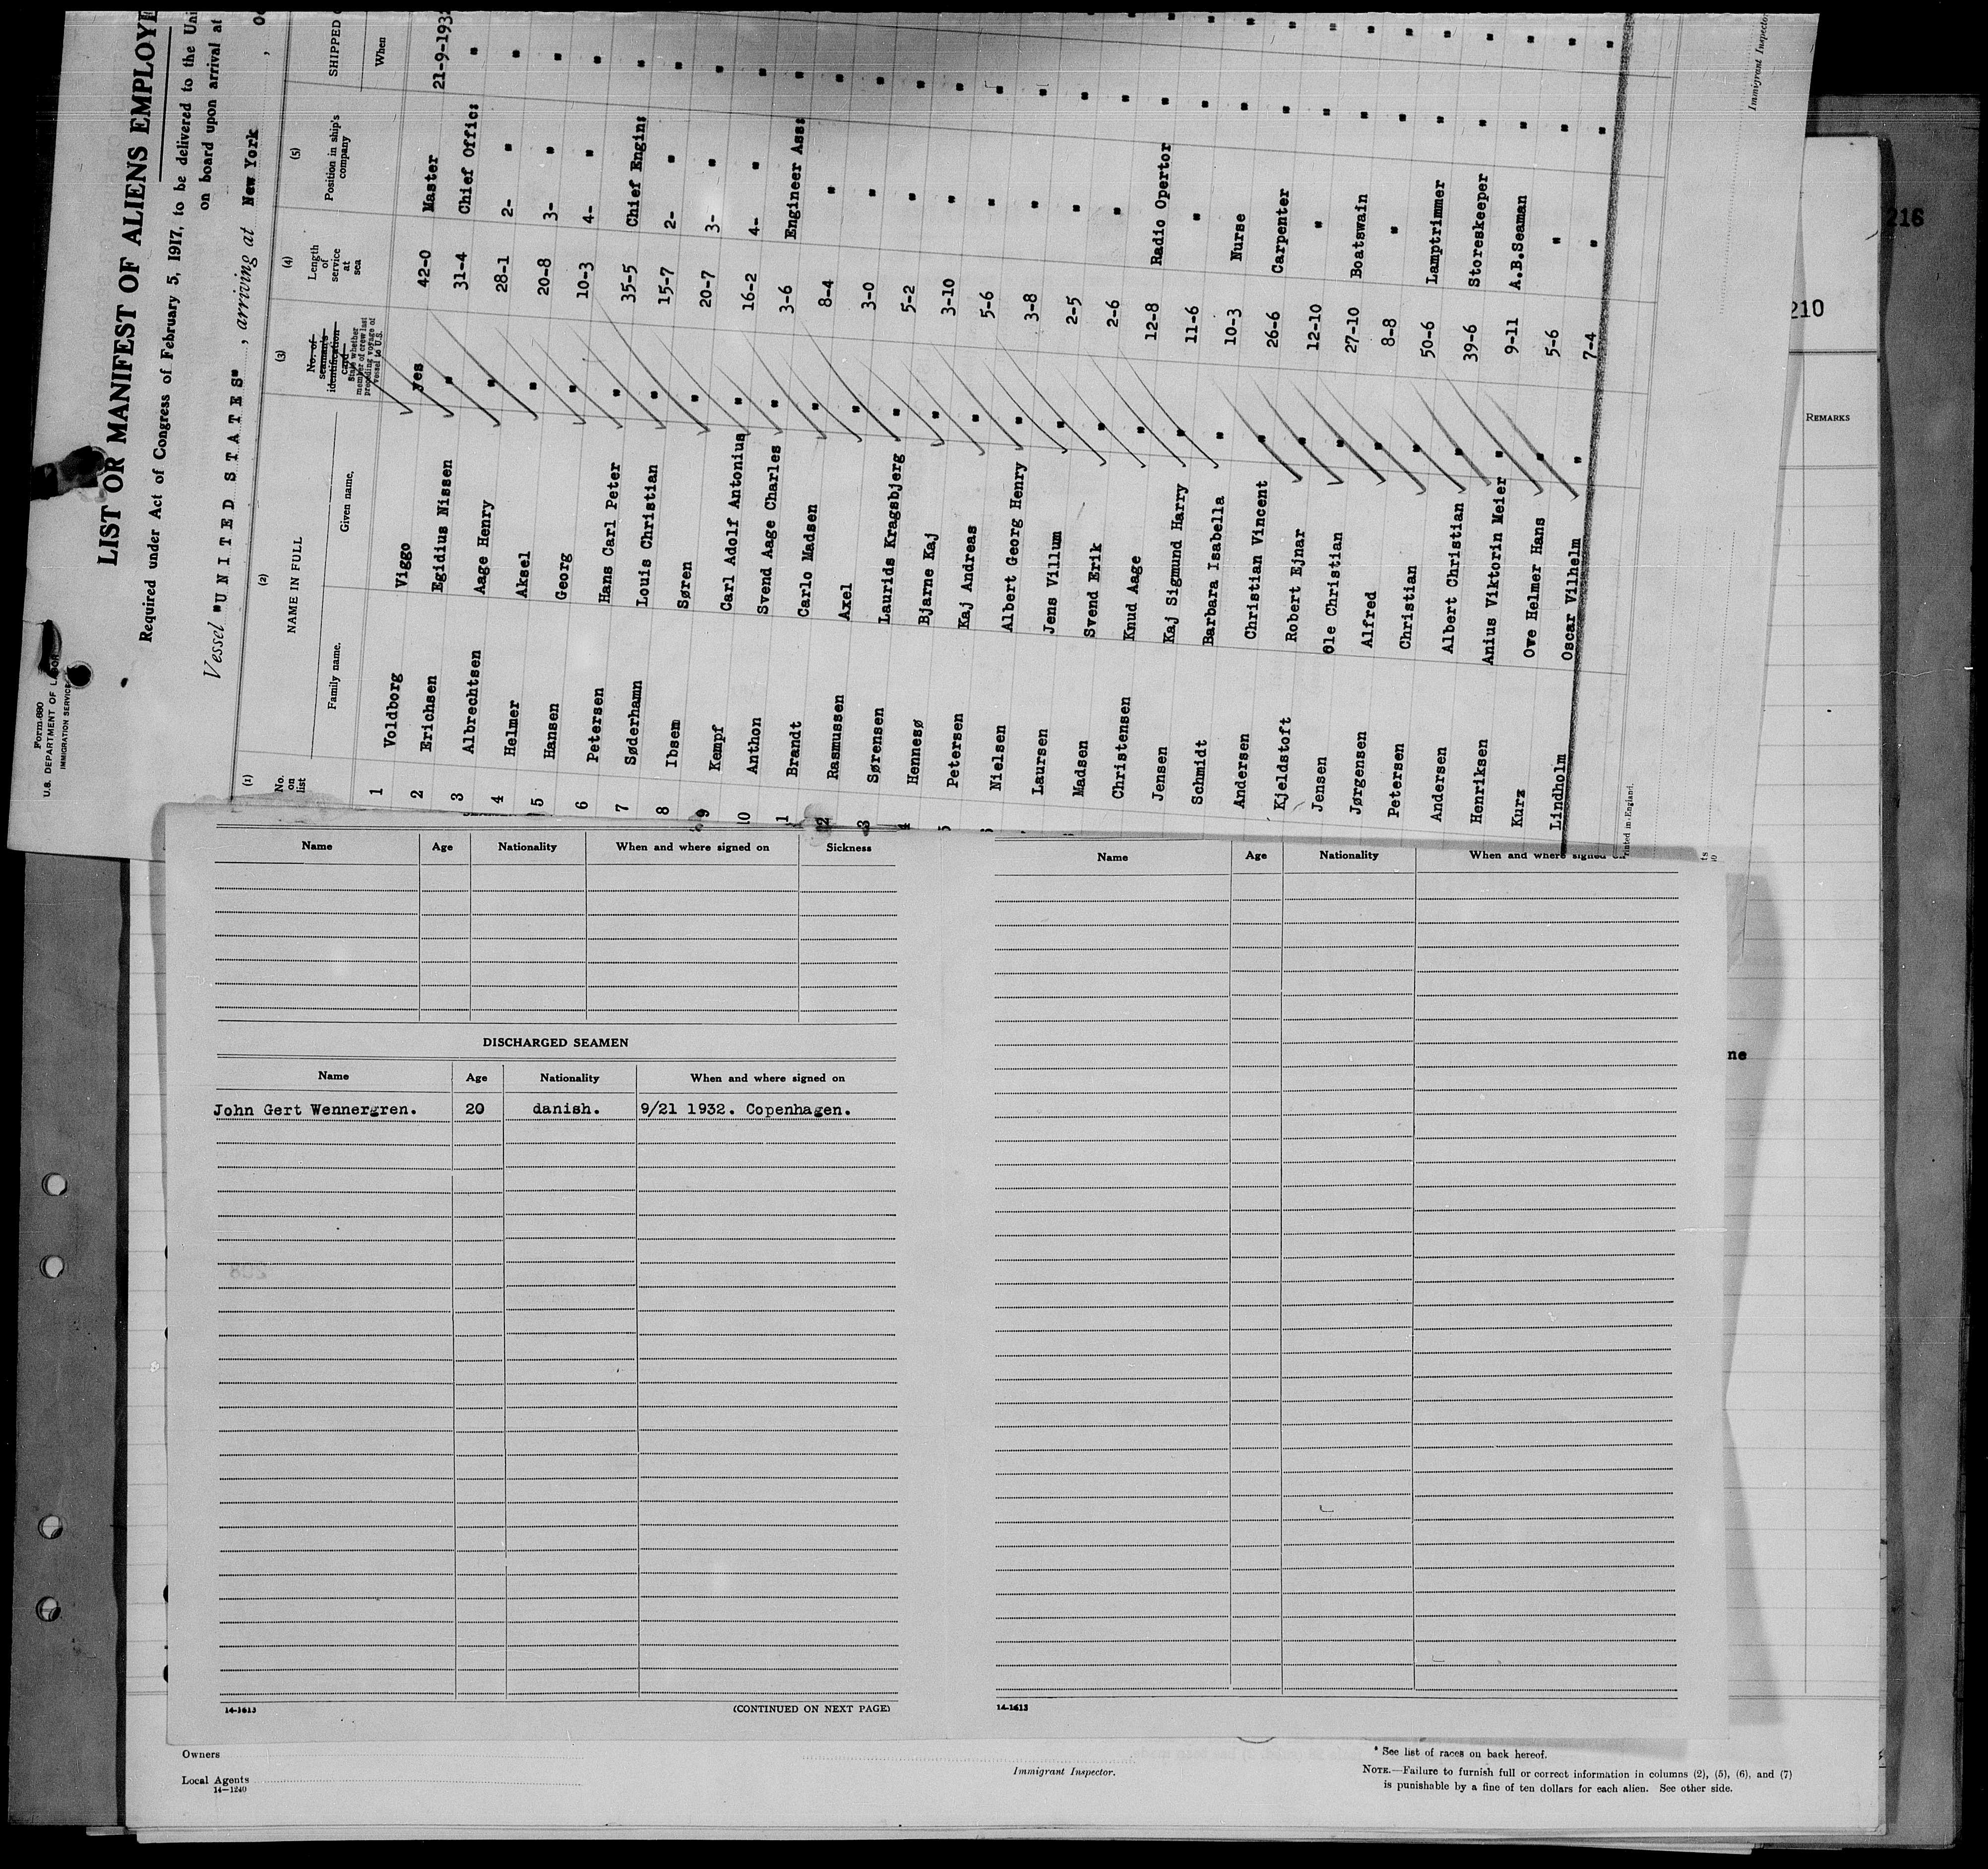 Form 680
U.S. DEPARTMENT OF LABOR
IMMIGRATION SERVICE
LIST OR MANIFEST OF ALIENS EMPLOYE
Required under Act of Congress of February 5, 1917, to be delivered to the Uni
on board upon arrival at
Vessel "UNITED STATES", arriving at New York
(1) (2) (3) (4) (5)
No. on list NAME IN FULL No. of seaman's identification card State whether member of crew last preceding voyage of vessel to U.S. Length of service at sea Position in ship's company SHIPPED
Family name. Given name. When
1 Voldborg Viggo yes 42-0 Master 21-9-1932
2 Erichsen Egidius Nissen " 31-4 Chief Offic: "
3 Albrechtsen Aage Henry " 28-1 2- " "
4 Helmer Aksel " 20-8 3- " "
5 Hansen Georg " 10-3 4- " "
6 Petersen Hans Carl Peter " 35-5 Chief Engin: "
7 Søderhamn Louis Christian " 15-7 2- " "
8 Ibsen Søren " 20-7 3- " "
9 Kempf Carl Adolf Antonius " 16-2 4- " "
10 Anthon Svend Aage Charles " 3-6 Engineer Ass: "
1 Brandt Carlo Madsen " 8-4 " "
2 Rasmussen Axel " 3-0 " "
3 Sørensen Laurids Kragsbjerg " 5-2 " "
4 Hennesø Bjarne Kaj " 3-10 " "
5 Petersen Kaj Andreas " 5-6 " "
Nielsen Albert Georg Henry " 3-8 " "
Laursen Jens Villum " 2-5 " "
Madsen Svend Erik " 2-6 " "
Christensen Knud Aage " 12-8 Radio Opertor "
Jensen Kaj Sigmund Harry " 11-6 " "
Schmidt Barbara Isabella " 10-3 Nurse "
Andersen Christian Vincent " 26-6 Carpenter "
Kjeldstoft Robert Ejnar " 12-10 " "
Jensen Ole Christian " 27-10 Boatswain "
Jørgensen Alfred " 8-8 " "
Petersen Christian " 50-6 Lamptrimmer "
Andersen Albert Christian " 39-6 Storeskeeper "
Henriksen Anius Viktorin Meier " 9-11 A.B.Seaman "
Kurz Ove Helmer Hans " 5-6 " "
Lindholm Oscar Vilhelm " 7-4 " "
Printed in England.
Immigrant Inspector
216
210
REMARKS
ne
Name Age Nationality When and where signed on Sickness
DISCHARGED SEAMEN
Name Age Nationality When and where signed on
John Gert Wennergren. 20 danish. 9/21 1932. Copenhagen.
14-1613 (CONTINUED ON NEXT PAGE)
Name Age Nationality When and where signed
14-1613
Owners
Local Agents
14-1240
Immigrant Inspector.
* See list of races on back hereof.
NOTE.—Failure to furnish full or correct information in columns (2), (5), (6), and (7)
is punishable by a fine of ten dollars for each alien. See other side.